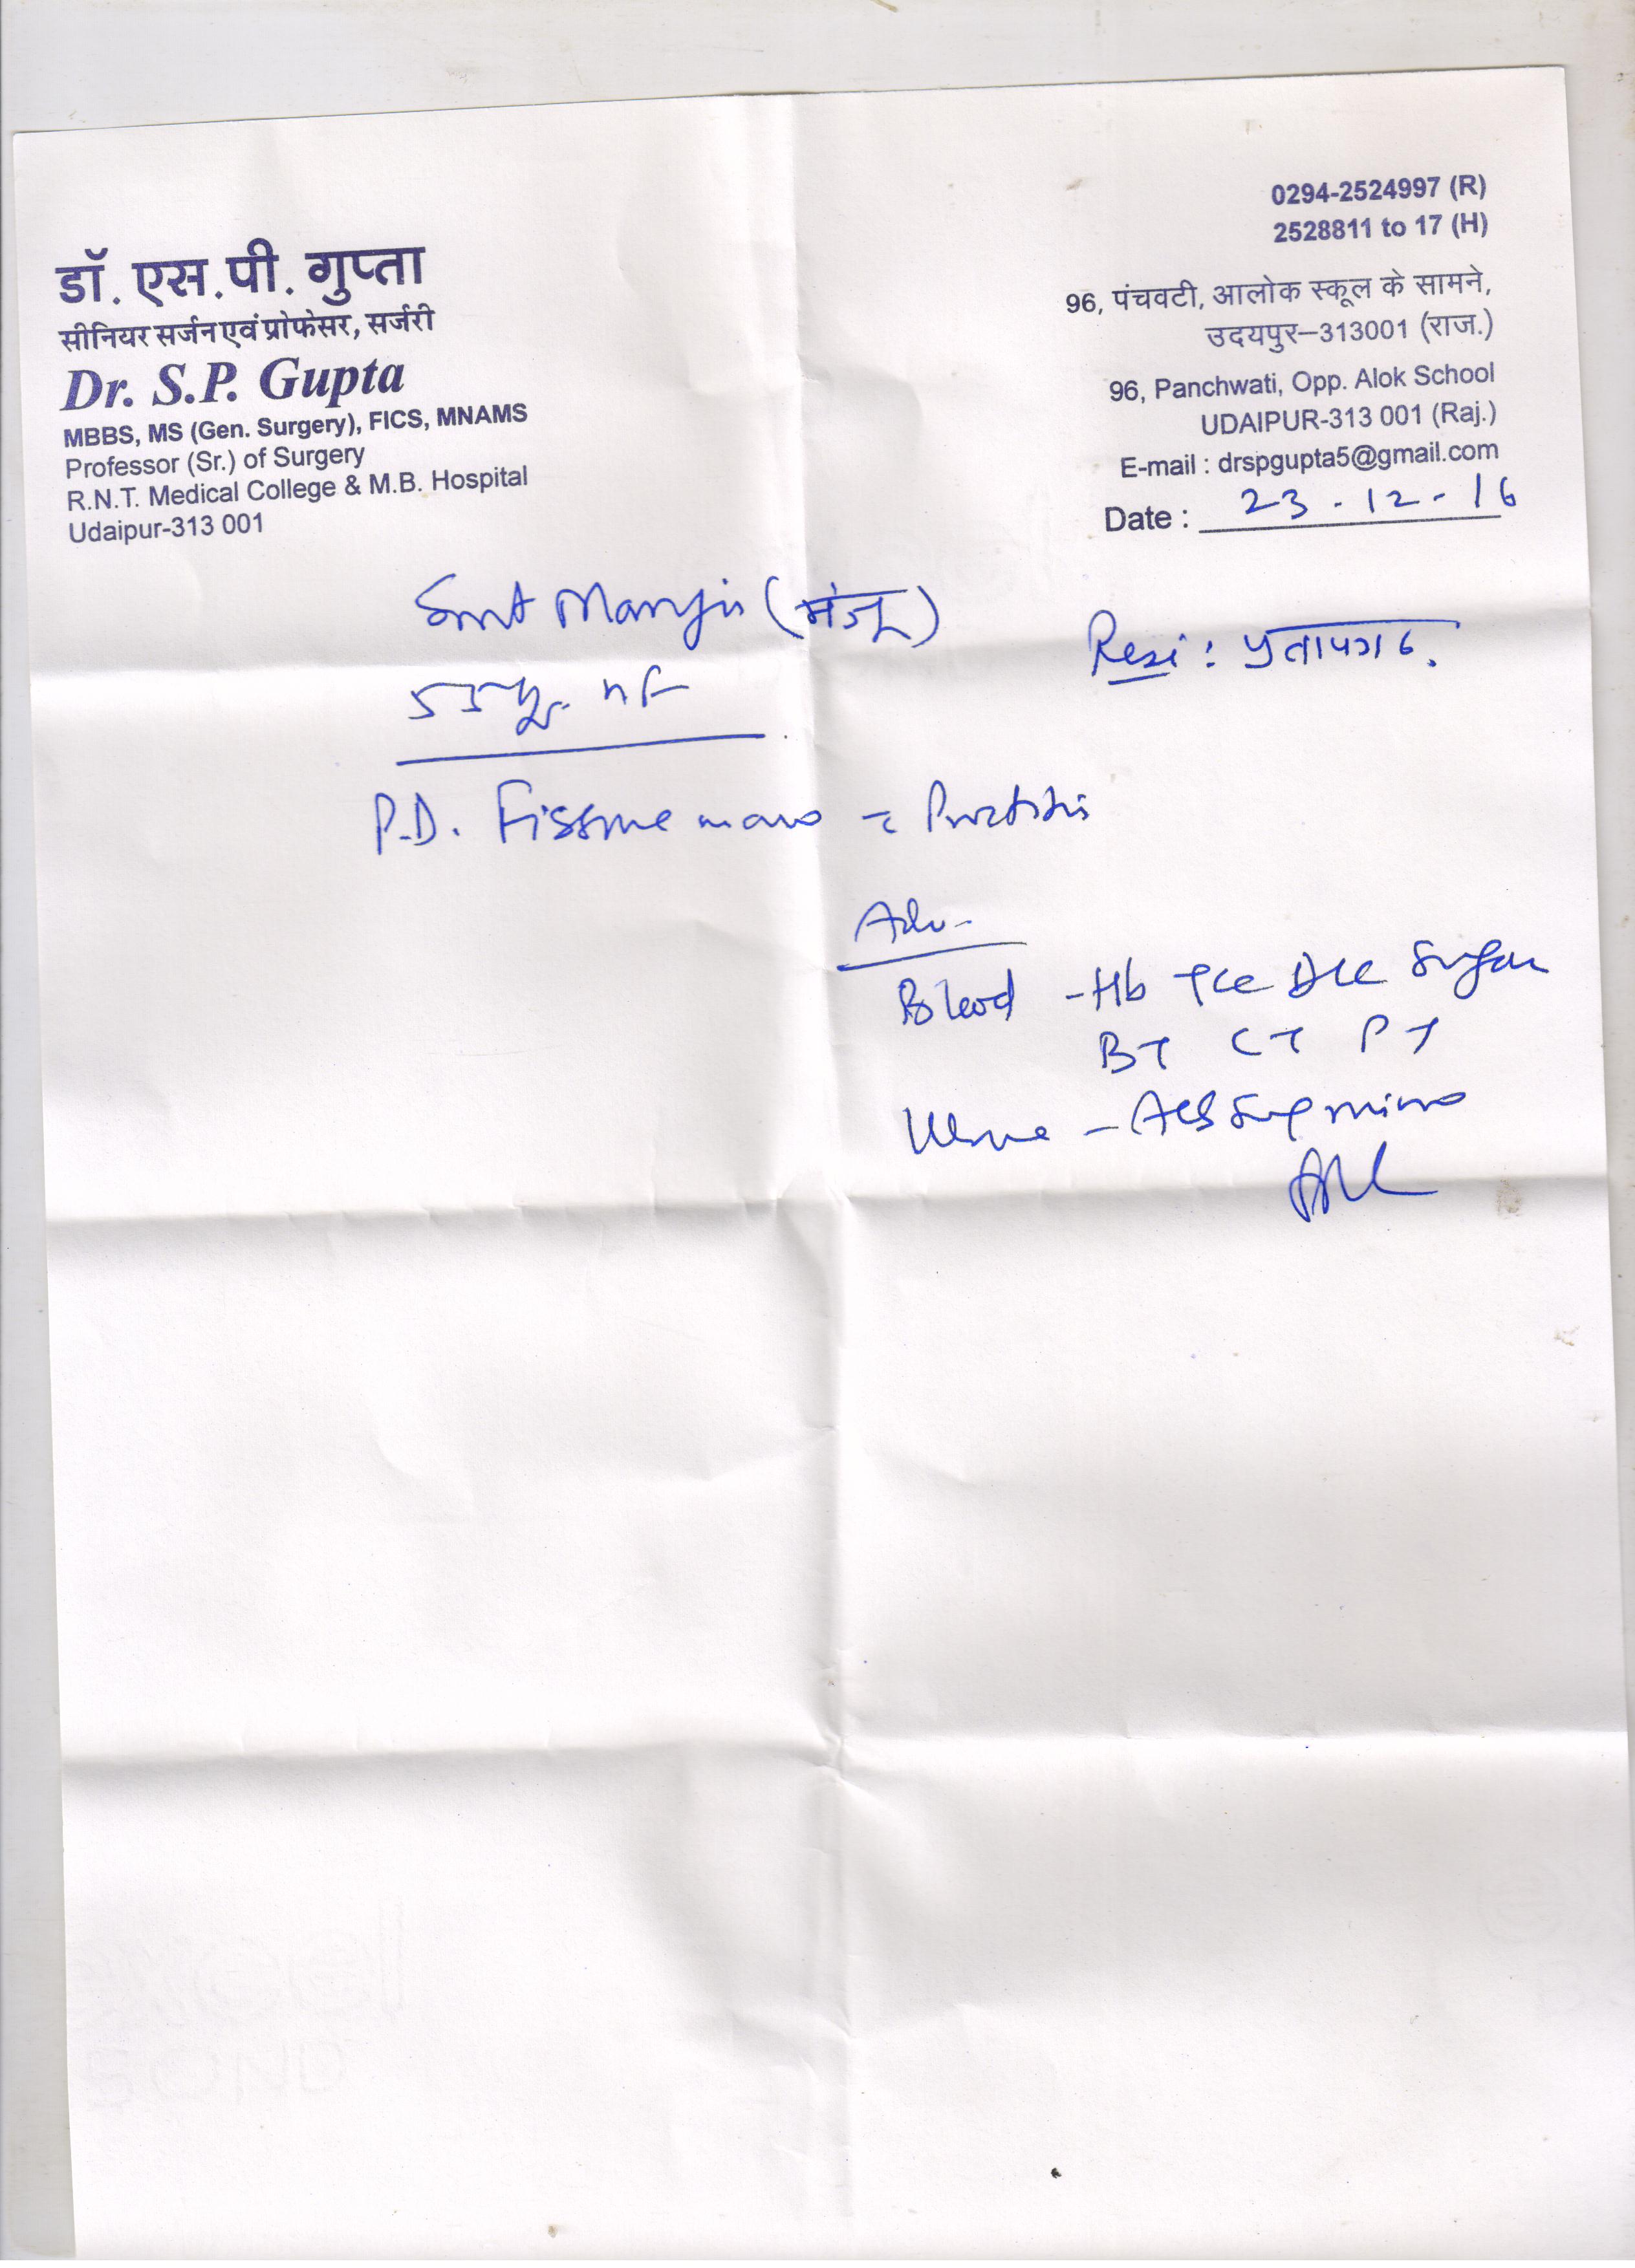 0294-2524997 (R)
2528811 to 17 (H)
डॉ. एस.पी. गुप्ता
सीनियर सर्जन एवं प्रोफेसर, सर्जरी
Dr. S.P. Gupta
MBBS, MS (Gen. Surgery), FICS, MNAMS
Professor (Sr.) of Surgery
R.N.T. Medical College & M.B. Hospital
Udaipur-313 001
96, पंचवटी, आलोक स्कूल के सामने,
उदयपुर–313001 (राज.)
96, Panchwati, Opp. Alok School
UDAIPUR-313 001 (Raj.)
E-mail : drspgupta5@gmail.com
Date : 23-12-16
Smt Manju (मंजू)
Resi : प्रतापगढ.
55
P.D. Fissure c Proctitis
Adv-
Blood - Hb TLC DLC Sugar
BT CT PT
Urine - Alb Sug micro